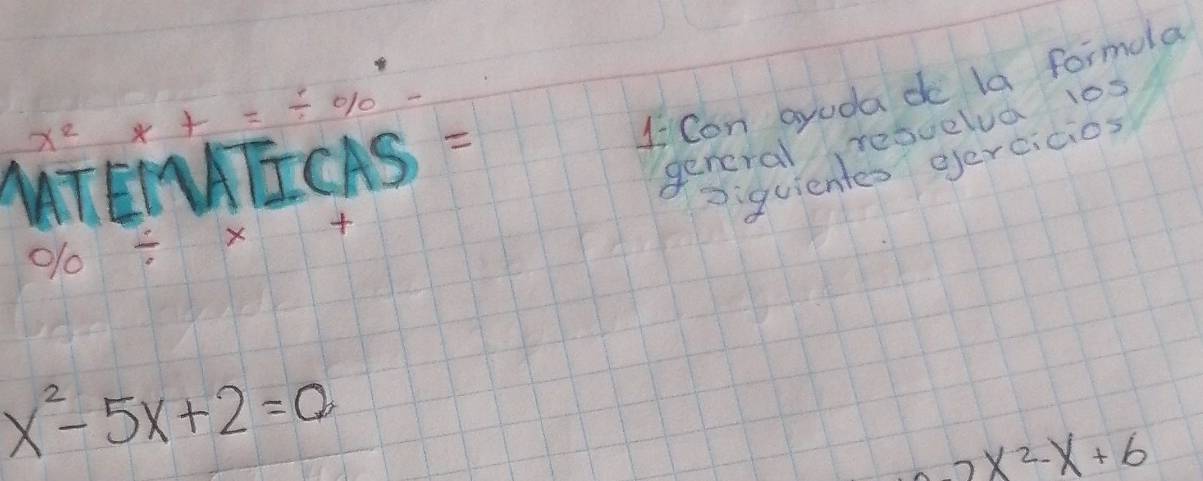 x² x + = ÷ % -
MATEMATICAS =
% ÷ x +
1- Con ayuda de la formula
general resuelva los
siguientes ejercicios
x² - 5x + 2 = 0
x² - x + 6